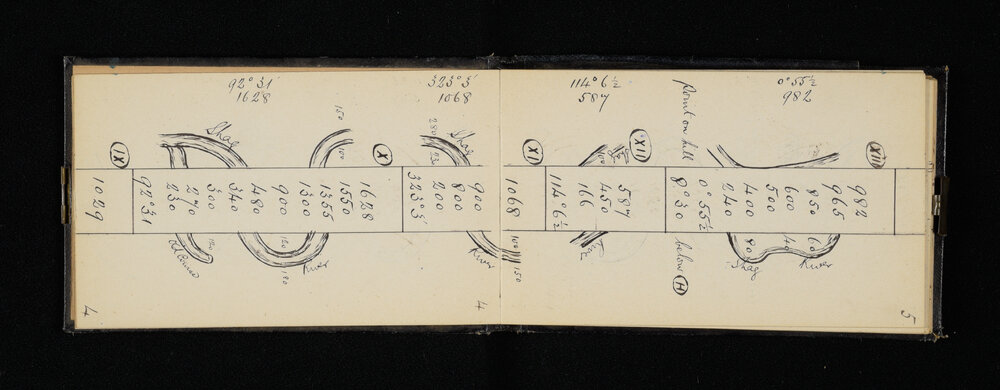 92° 31'
1628
323° 3'
1068
114° 6½
587
0° 55½
982
Point on hill
Shag
150
100
280
Shag
IX
X
XI
XII
XIII
1029
92° 31
230
270
300
340
480
900
1300
1355
1550
1628
323° 3'
200
800
900
1068
114° 6½
166
450
587
8° 30
0° 55½
240
400
500
600
850
965
982
120
120
River
180
River
100
150
River
below H
80
40
60
Shag
River
4
4
5